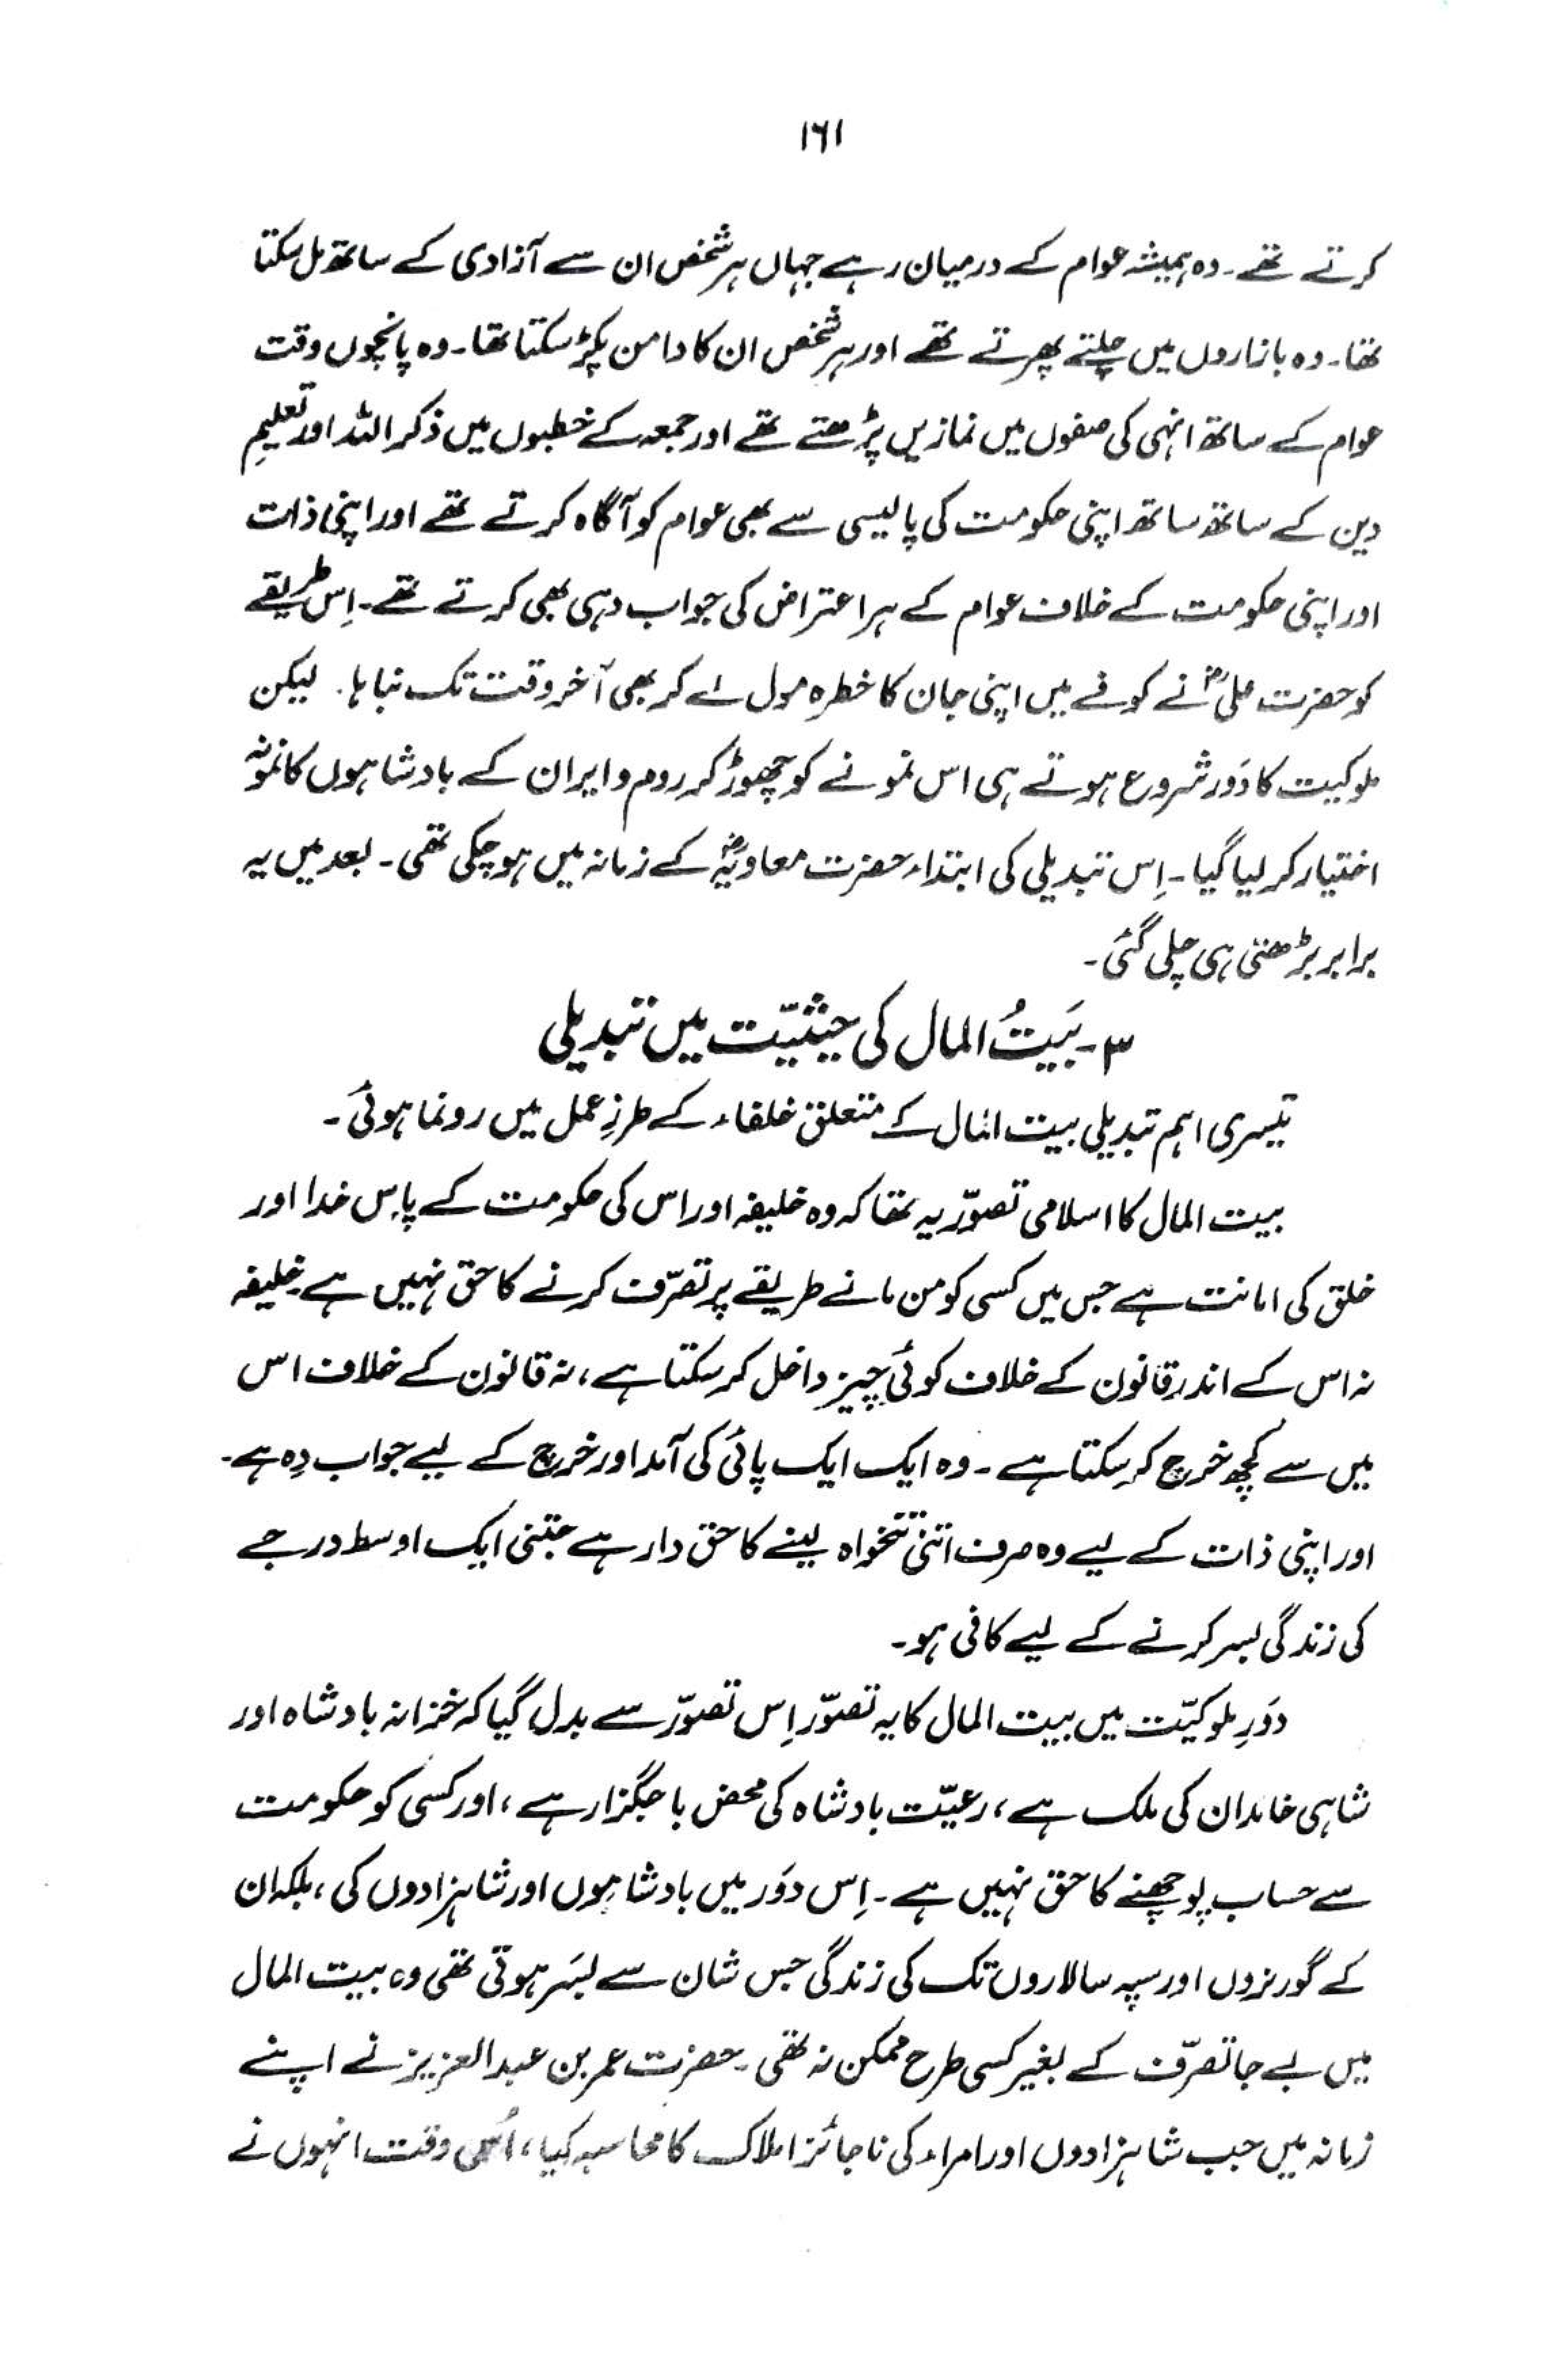 ۱۶۱
کرتے تھے۔ وہ ہمیشہ عوام کے درمیان رہے جہاں ہر شخص ان سے آزادی کے ساتھ مل سکتا
تھا۔ وہ بازاروں میں چلتے پھرتے تھے اور ہر شخص ان کا دامن پکڑ سکتا تھا۔ وہ پانچوں وقت
عوام کے ساتھ انہی کی صفوں میں نمازیں پڑھتے تھے اور جمعہ کے خطبوں میں ذکر اللہ اور تعلیمِ
دین کے ساتھ ساتھ اپنی حکومت کی پالیسی سے بھی عوام کو آگاہ کرتے تھے اور اپنی ذات
اور اپنی حکومت کے خلاف عوام کے ہر اعتراض کی جواب دہی بھی کرتے تھے۔ اِس طریقے
کو حضرت علیؓ نے کوفے میں اپنی جان کا خطرہ مول لے کر بھی آخر وقت تک نباہا۔ لیکن
ملوکیت کا دَور شروع ہوتے ہی اس نمونے کو چھوڑ کر روم و ایران کے بادشاہوں کا نمونہ
اختیار کر لیا گیا۔ اِس تبدیلی کی ابتداء حضرت معاویہؓ کے زمانہ میں ہو چکی تھی۔ بعد میں یہ
برابر بڑھتی ہی چلی گئی۔
۳۔ بَیتُ المال کی حیثیّت میں تبدیلی
تیسری اہم تبدیلی بیت المال کے متعلق خلفاء کے طرزِ عمل میں رونما ہوئی۔
بیت المال کا اسلامی تصوّر یہ تھا کہ وہ خلیفہ اور اس کی حکومت کے پاس خدا اور
خلق کی امانت ہے جس میں کسی کو من مانے طریقے پر تصرّف کرنے کا حق نہیں ہے۔ خلیفہ
نہ اس کے اندر قانون کے خلاف کوئی چیز داخل کر سکتا ہے، نہ قانون کے خلاف اس
میں سے کچھ خرچ کر سکتا ہے۔ وہ ایک ایک پائی کی آمد اور خرچ کے لیے جواب دِہ ہے۔
اور اپنی ذات کے لیے وہ صرف اتنی تنخواہ لینے کا حق دار ہے جتنی ایک اوسط درجے
کی زندگی بسر کرنے کے لیے کافی ہو۔
دَورِ ملوکیّت میں بیت المال کا یہ تصوّر اِس تصوّر سے بدل گیا کہ خزانہ بادشاہ اور
شاہی خاندان کی ملک ہے، رعیّت بادشاہ کی محض باجگزار ہے، اور کسی کو حکومت
سے حساب پوچھنے کا حق نہیں ہے۔ اِس دَور میں بادشاہوں اور شاہزادوں کی، بلکہ ان
کے گورنروں اور سپہ سالاروں تک کی زندگی جس شان سے بسَر ہوتی تھی وہ بیت المال
میں بے جا تصرّف کے بغیر کسی طرح ممکن نہ تھی۔ حضرت عمر بن عبدالعزیز نے اپنے
زمانہ میں جب شاہزادوں اور امراء کی ناجائز املاک کا محاسبہ کیا، اُس وقت انہوں نے